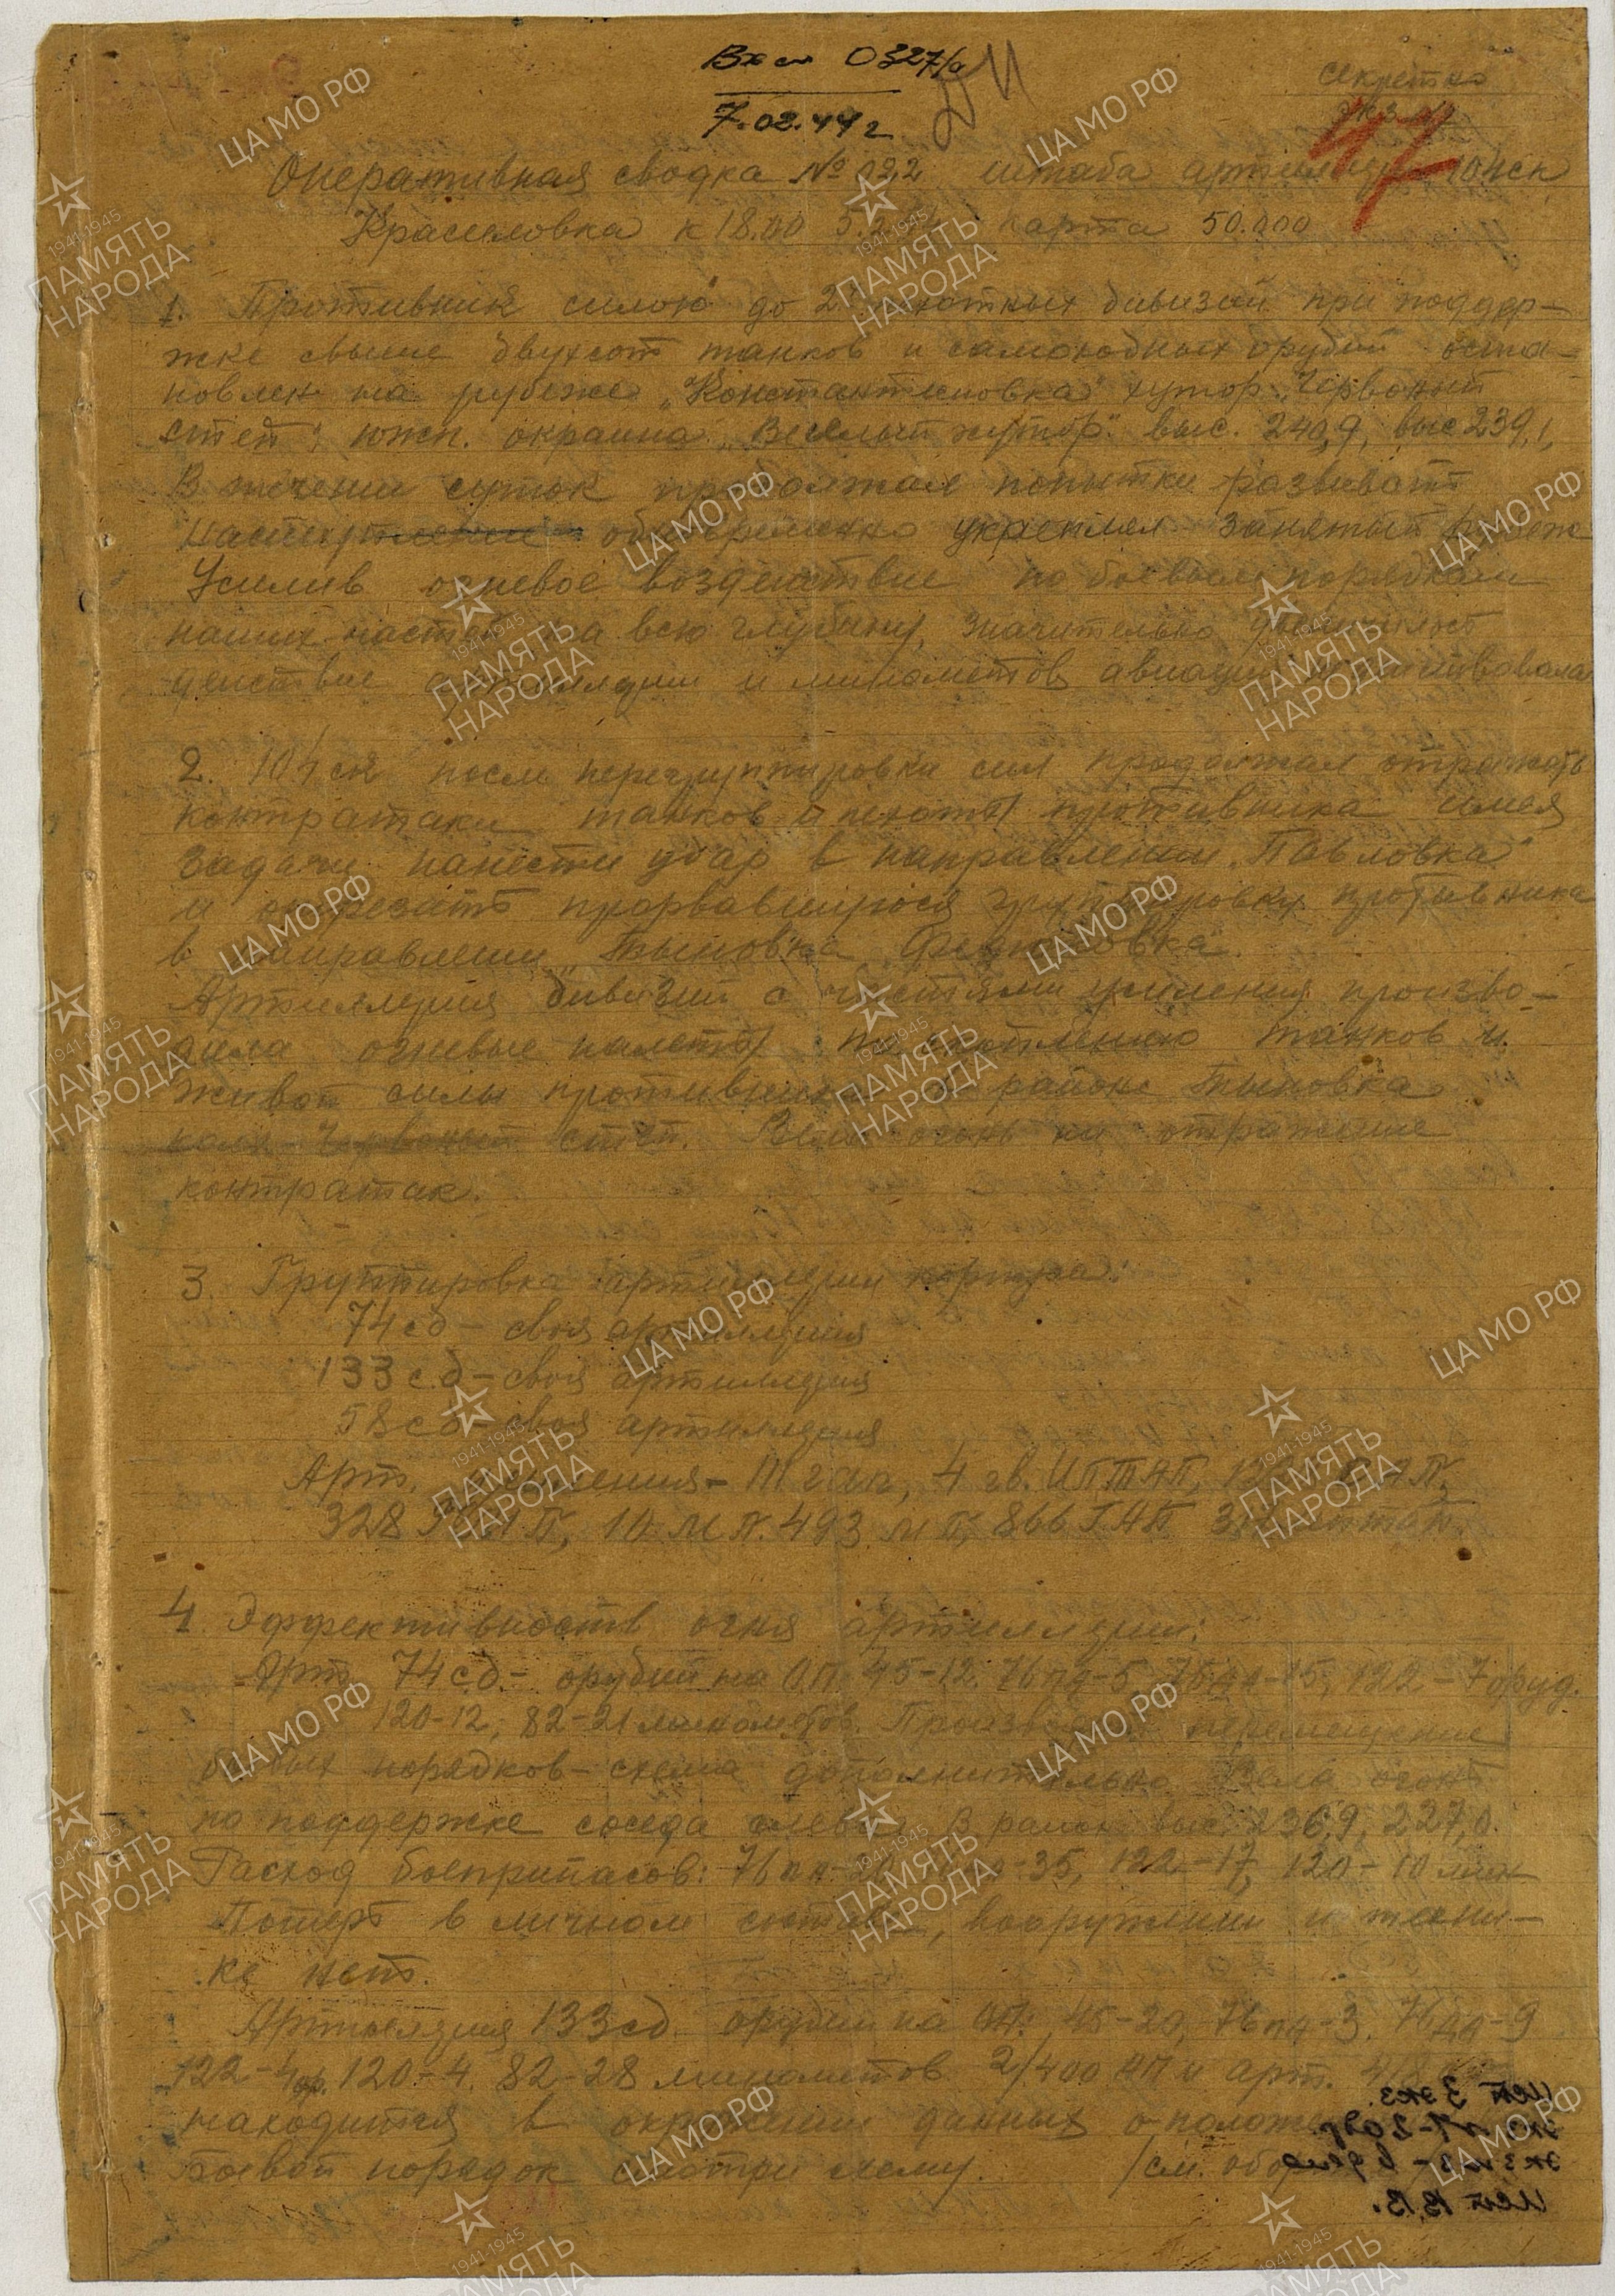 Вх см 0327/а
7.02.44 г
секретно
экз. №1
47
Оперативная сводка № 022 штаба артиллерии 104 ск
Красиловка к 18.00 5.2.44 карта 50.000
1. Противник силою до 2х пехотных дивизий при поддер-
жке свыше двухсот танков и самоходных орудий оста-
новлен на рубеже „Константиновка" хутор „Червоный
степ", южн. окраина „Веселый хутор" выс. 240,9, выс 239,1,
В течении суток продолжал попытки развивать
наступление одновременно укреплял занятый рубеж
Усилив огневое воздействие по боевым порядкам
наших частей на всю глубину, значительно
действие артиллерии и минометов, авиация не действовала
2. 104 ск после перегруппировки сил продолжал отражать
контратаки танков и пехоты противника имея
задачи нанести удар в направлении „Павловка"
и отрезать прорвавшуюся группировку противника
в направлении „Тыновка
Артиллерия дивизий с частями усиления произво-
дила огневые налеты по скоплению танков и
живой силы противника в районе Тыновка
Червоный степ. Вела огонь на отражение
контратак.
3. Группировка артиллерии корпуса:
74 сд – своя артиллерия
133 сд – своя артиллерия
58 сд – своя артиллерия
Арт. усиления – 111 гап, 4 гв. ИПТАП,
328 10 МП. 493 МП, 866 ГАП
4. Эффективность огня артиллерии:
Арт. 74 сд – орудий на ОП: 45-12, 76 па-5, 76 да-15, 122-7 оруд.
120-12, 82-21 минометов. перемещение
боевых порядков – схема дополнительно. Вела огонь
по поддержке соседа слева В район выс. 236,9, 227,0.
Расход боеприпасов: 76 па -35, 122-17, 120-10 мин
Потерь в личном составе, вооружении и техни-
ке нет.
Артиллерия 133 сд орудий на ОП: 45-20, 76 па-3. 76 да-9
122-4 ор. 120-4. 82-28 минометов. 2/400 АП и арт.
находится в окружении данных о
Боевой порядок смотри схему. /см. обор